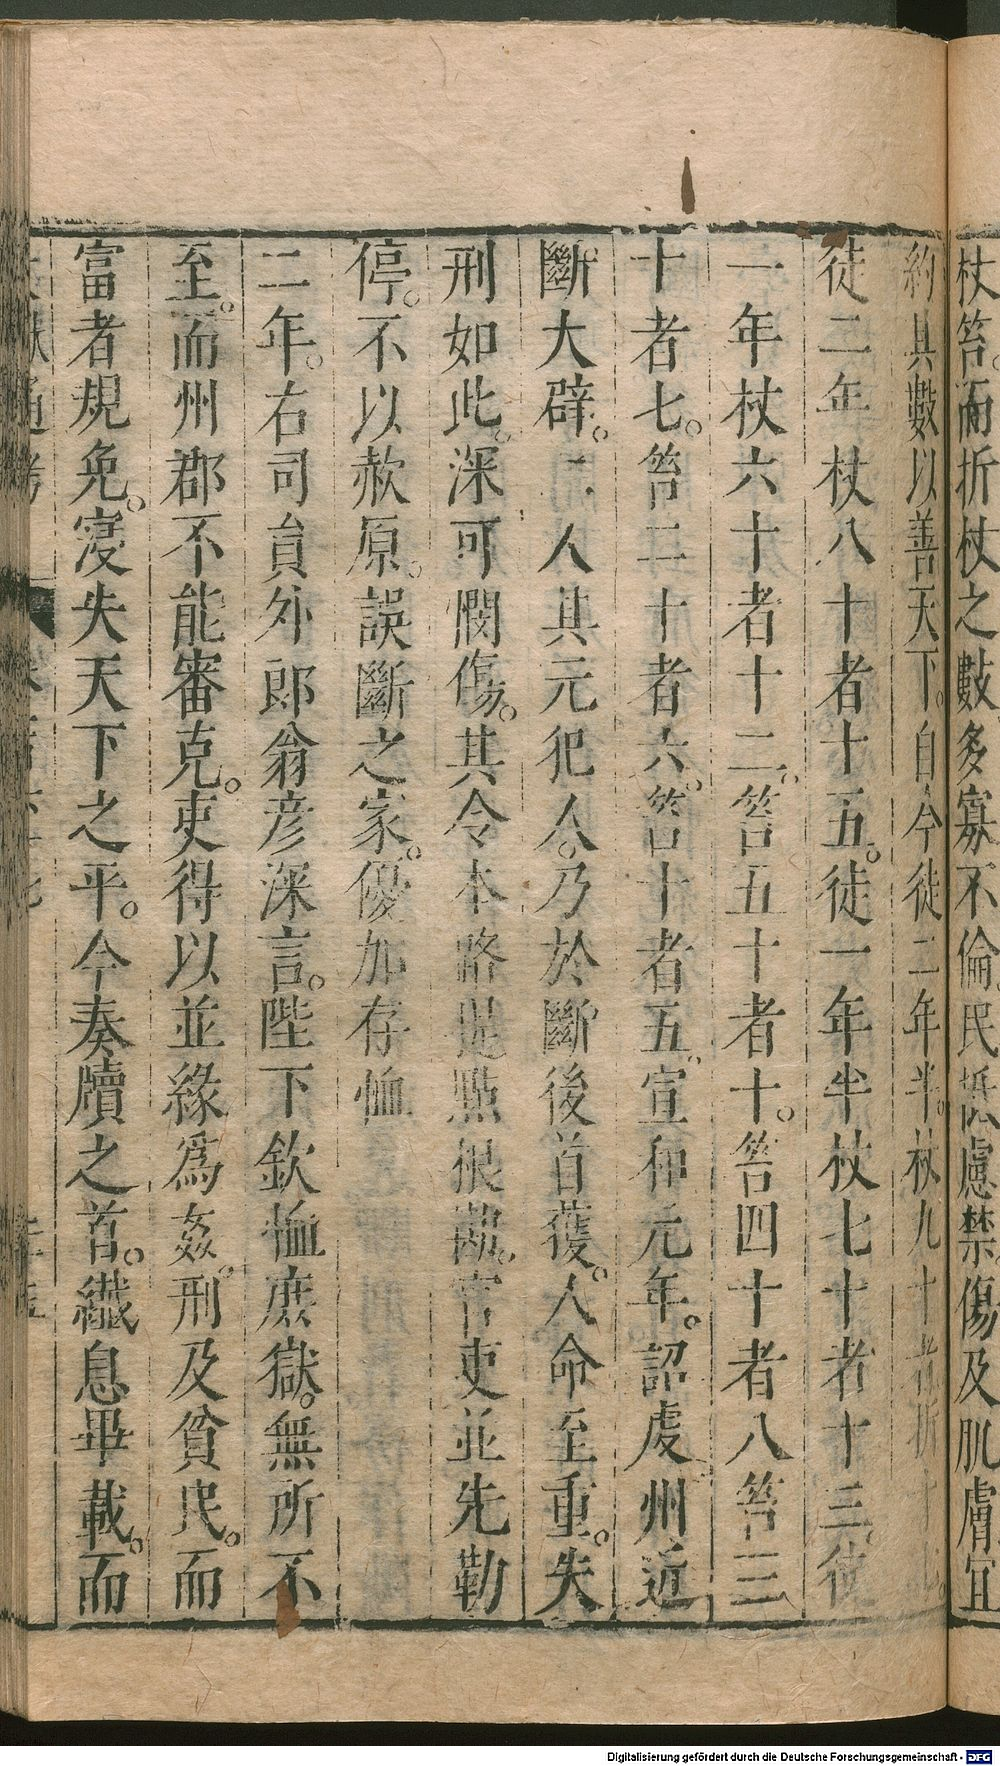 杖笞。而折杖之數多寡不倫。民抵慮禁。傷及肌膚。宜
約其數以善天下。自今徒二年半。杖九十者折十
徒二年杖八十者十五。徒一年半杖七十者十三。徒
一年杖六十者十二。笞五十者十。笞四十者八笞三
十者七。笞二十者六。笞十者五。宣和元年。詔虔州近
斷大辟。二人其元犯人。乃於斷後首獲。人命至重。失
刑如此。深可憫傷。其令本路提點根勘。官吏並先勒
停。不以赦原。誤斷之家。優加存恤
二年。右司員外郎翁彥深言。陛下欽恤庶獄。無所不
至。而州郡不能審克。吏得以並緣爲姦。刑及貧民。而
富者規免。寖失天下之平。今奏牘之首。纖息畢載。而
通考
Digitalisierung gefördert durch die Deutsche Forschungsgemeinschaft - DFG